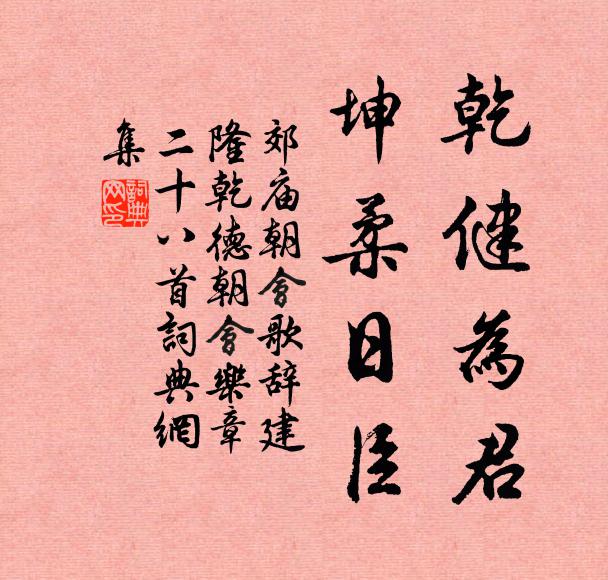 乾健為君
坤柔日臣
郊庙朝會歌辞建
隆乾德朝會樂章
二十八首詞典網
集
詞典
网印